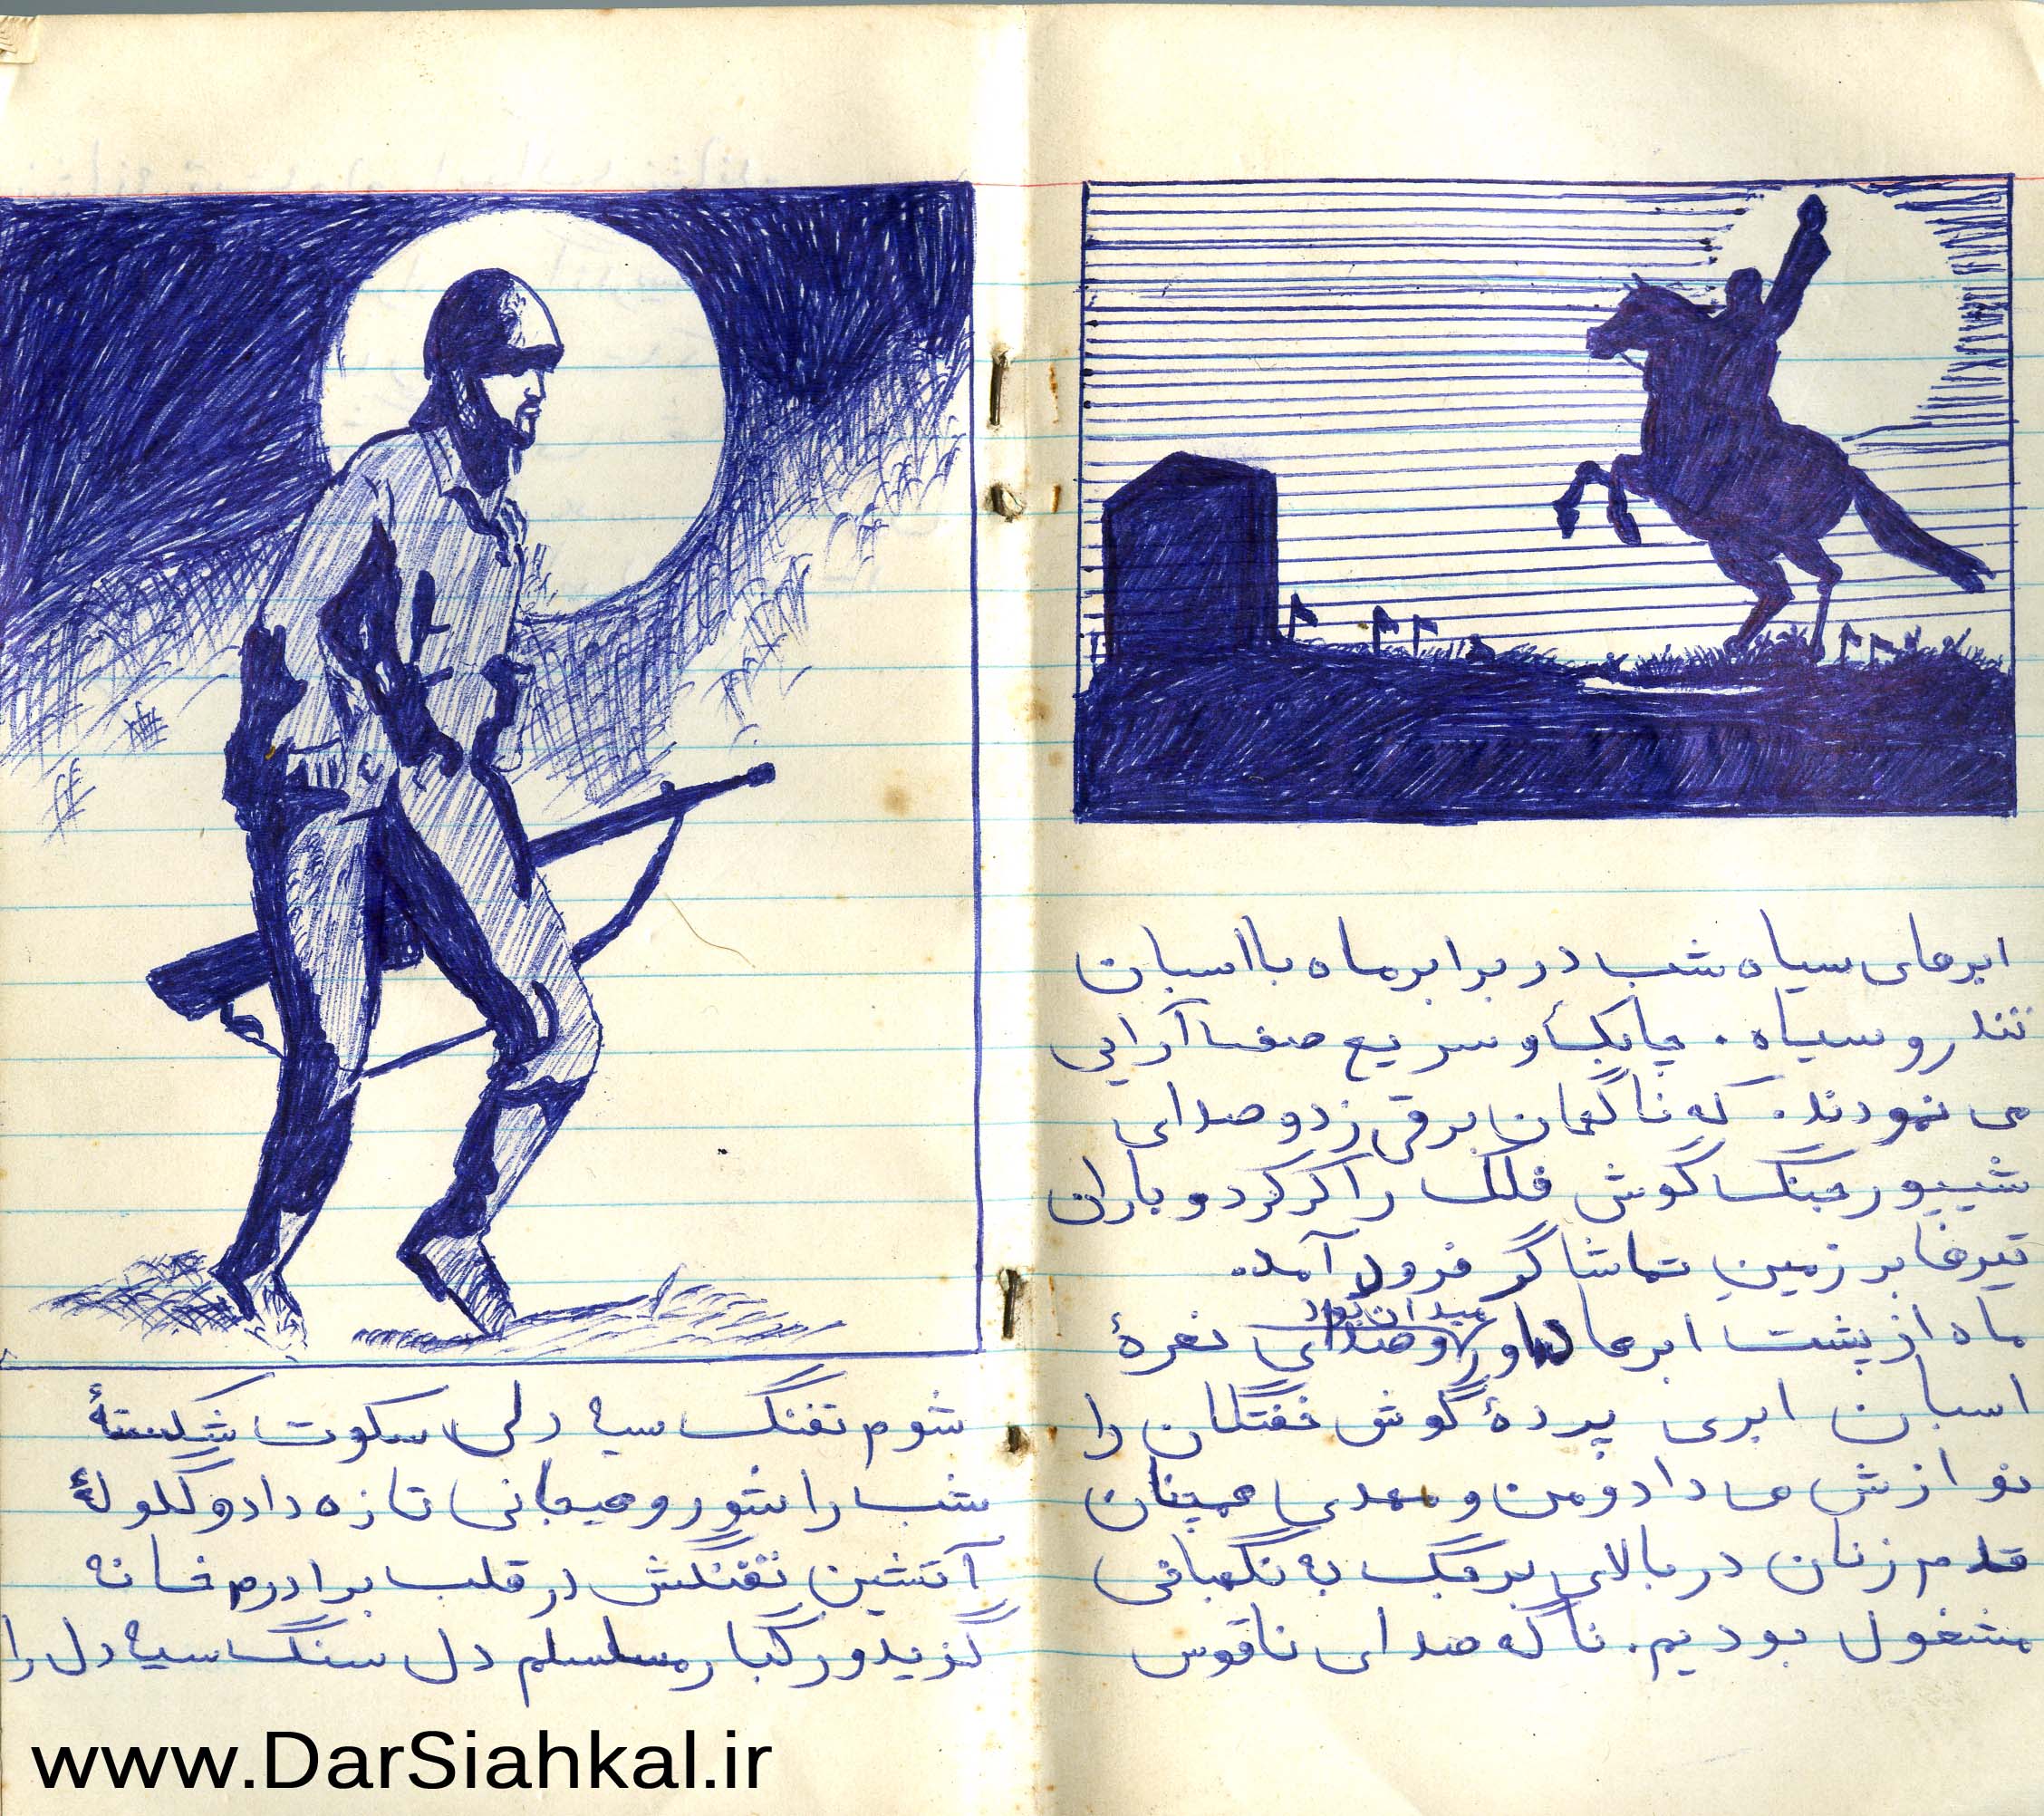 ابرهای سیاه شب در برابر ماه با اسبان
تندرو سیاه. چابک و سریع صف آرایی
می نمودند. که ناگهان برقی زد و صدای
شیپور جنگ گوش فلک را کر کرد و باران
تیرها بر زمین تماشاگر فرود آمد.
میدان نبرد
ماه از پشت ابرها و صدای نعرهٔ
اسبان ابری پردهٔ گوش خفتگان را
نوازش می داد و من و مهدی همچنان
قدم زنان در بالای برجک به نگهبانی
مشغول بودیم. ناگه صدای ناقوس
شوم تفنگ سیه دلی سکوت شکستهٔ
شب را شور و هیجانی تازه داد و گلولهٔ
آتشین تفنگش در قلب برادرم خانه
گزید و رگبار مسلسلم دل سنگ سیه دل را
www.DarSiahkal.ir